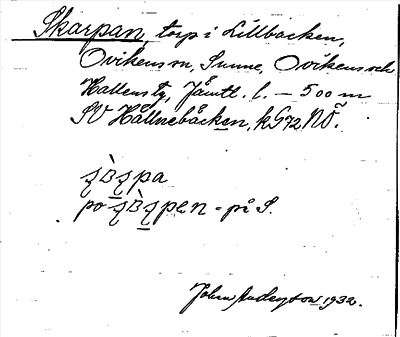 Skarpan, torp i Lillbacken,
Ovikens sn, Sunne, Ovikens och
Hallens tg, Jämtl. l. – 500 m
SV Hållnebäcken, k G72 NÖ.
po - på S.
Johan Anderson 1932.